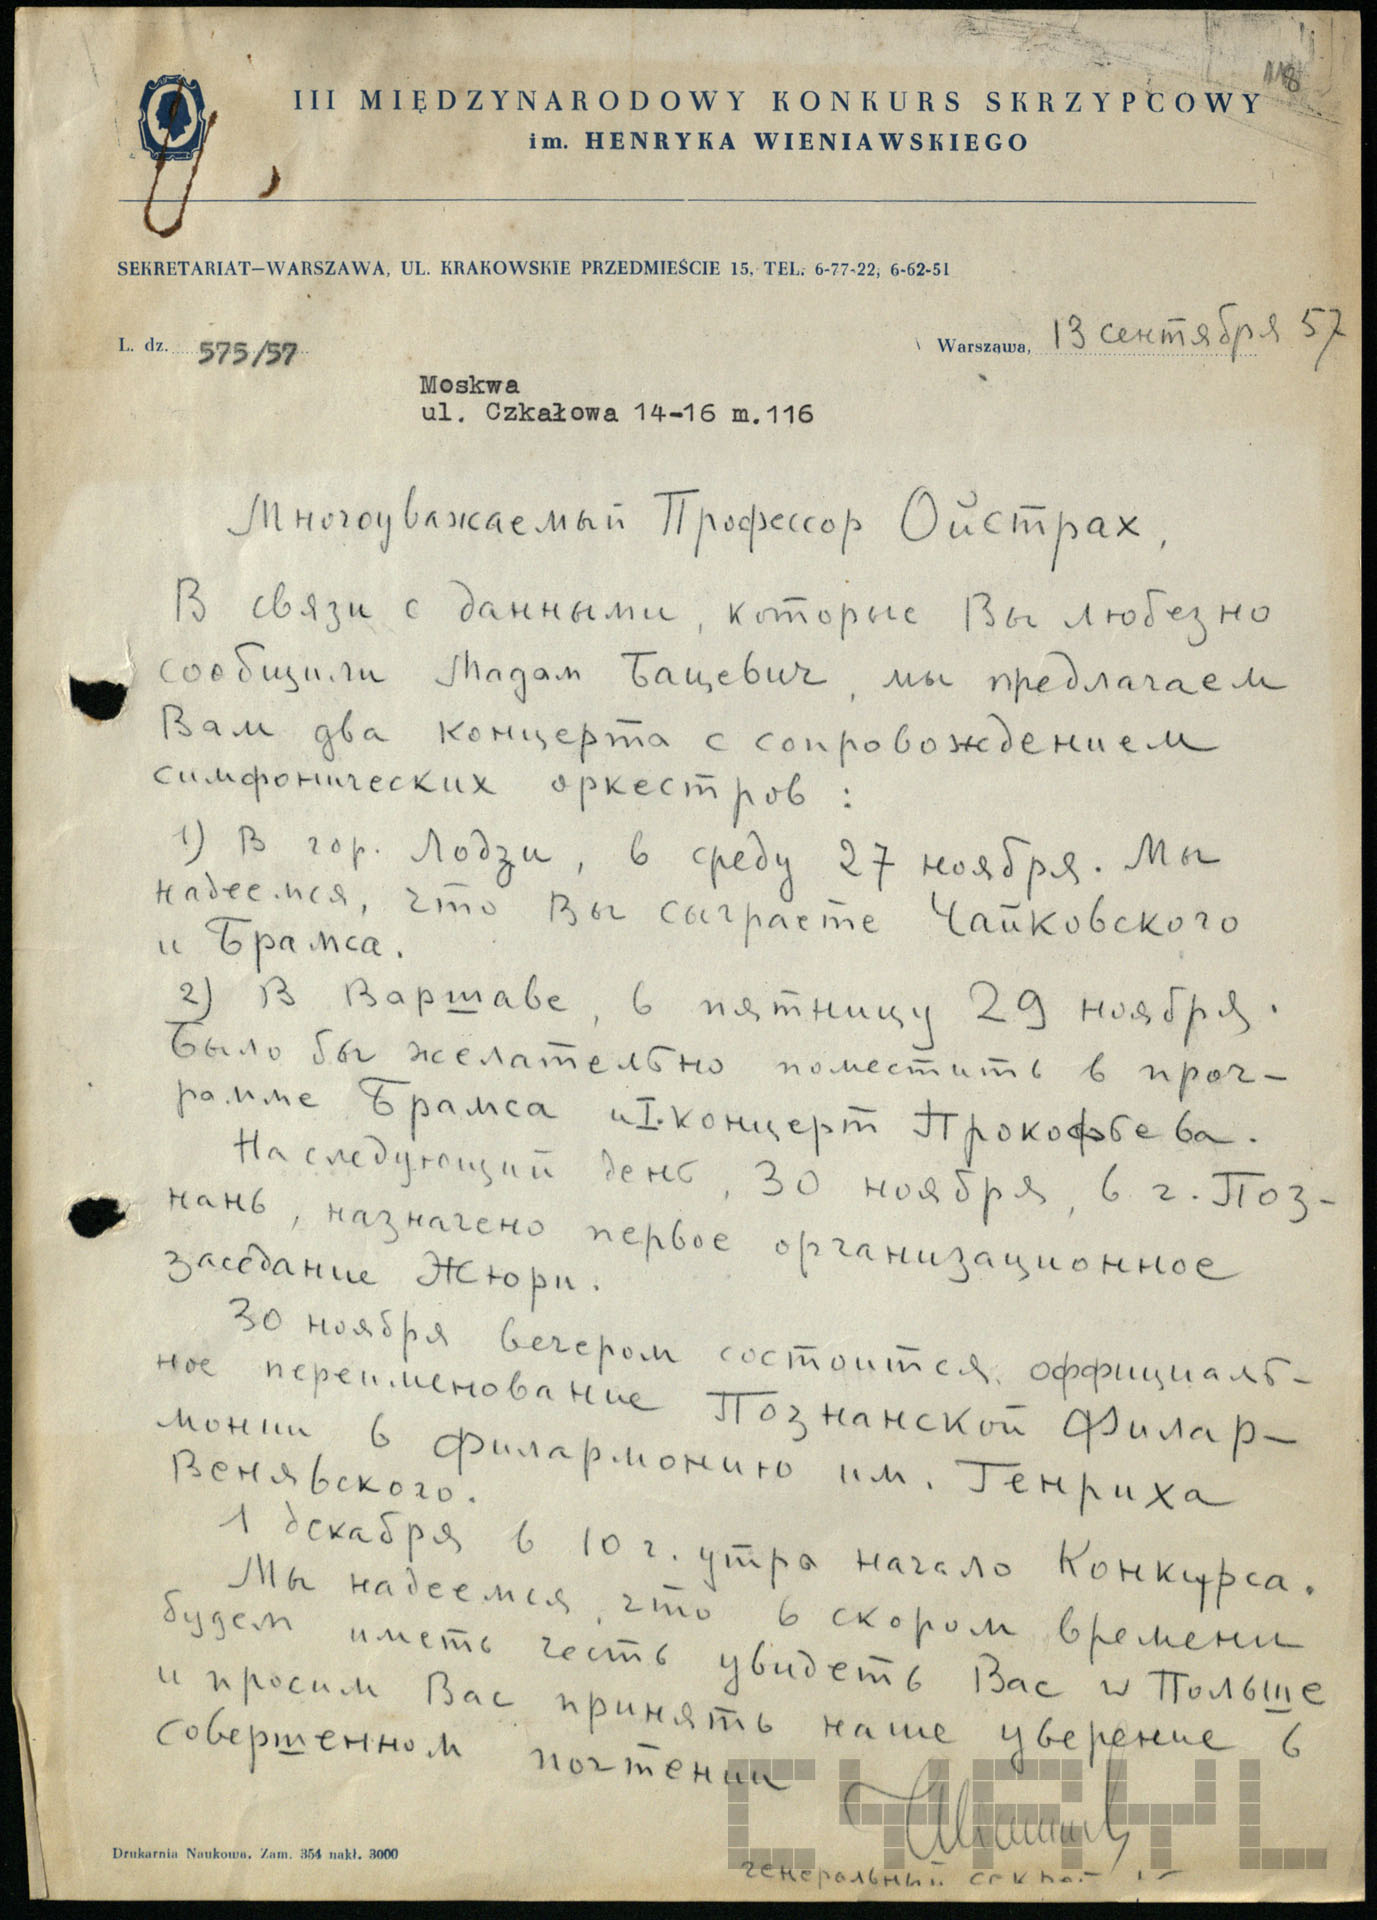 118
III MIĘDZYNARODOWY KONKURS SKRZYPCOWY
im. HENRYKA WIENIAWSKIEGO
SEKRETARIAT—WARSZAWA, UL. KRAKOWSKIE PRZEDMIEŚCIE 15, TEL. 6-77-22, 6-62-51
L. dz. 575/57
Warszawa, 13 сентября 57
Moskwa
ul. Czkałowa 14-16 m.116
Многоуважаемый Профессор Ойстрах,
В связи с данными, которые Вы любезно
сообщили Мадам Бацевич, мы предлагаем
Вам два концерта с сопровождением
симфонических оркестров:
1) В гор. Лодзи, в среду 27 ноября. Мы
надеемся, что Вы сыграете Чайковского
и Брамса.
2) В Варшаве, в пятницу 29 ноября.
Было бы желательно поместить в прог-
рамме Брамса и I. концерт Прокофьева.
На следующий день, 30 ноября, в г. Поз-
нань, назначено первое организационное
заседание Жюри.
30 ноября вечером состоится оффициаль-
ное переименование Познанской Филар-
монии в Филармонию им. Генриха
Венявского.
1 декабря в 10 г. утра начало Конкурса.
Мы надеемся, что в скором времени
будем иметь честь увидеть Вас w Польше
и просим Вас принять наше уверение в
совершенном почтении
CYRYL
генеральный
Drukarnia Naukowa. Zam. 354 nakł. 3000